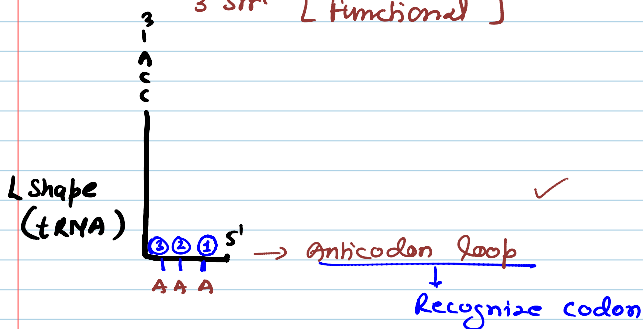 3° str [functional]
3'
A
C
C
L shape
(tRNA)
③ ② ① 5' → Anticodon loop
A A A
Recognize codon